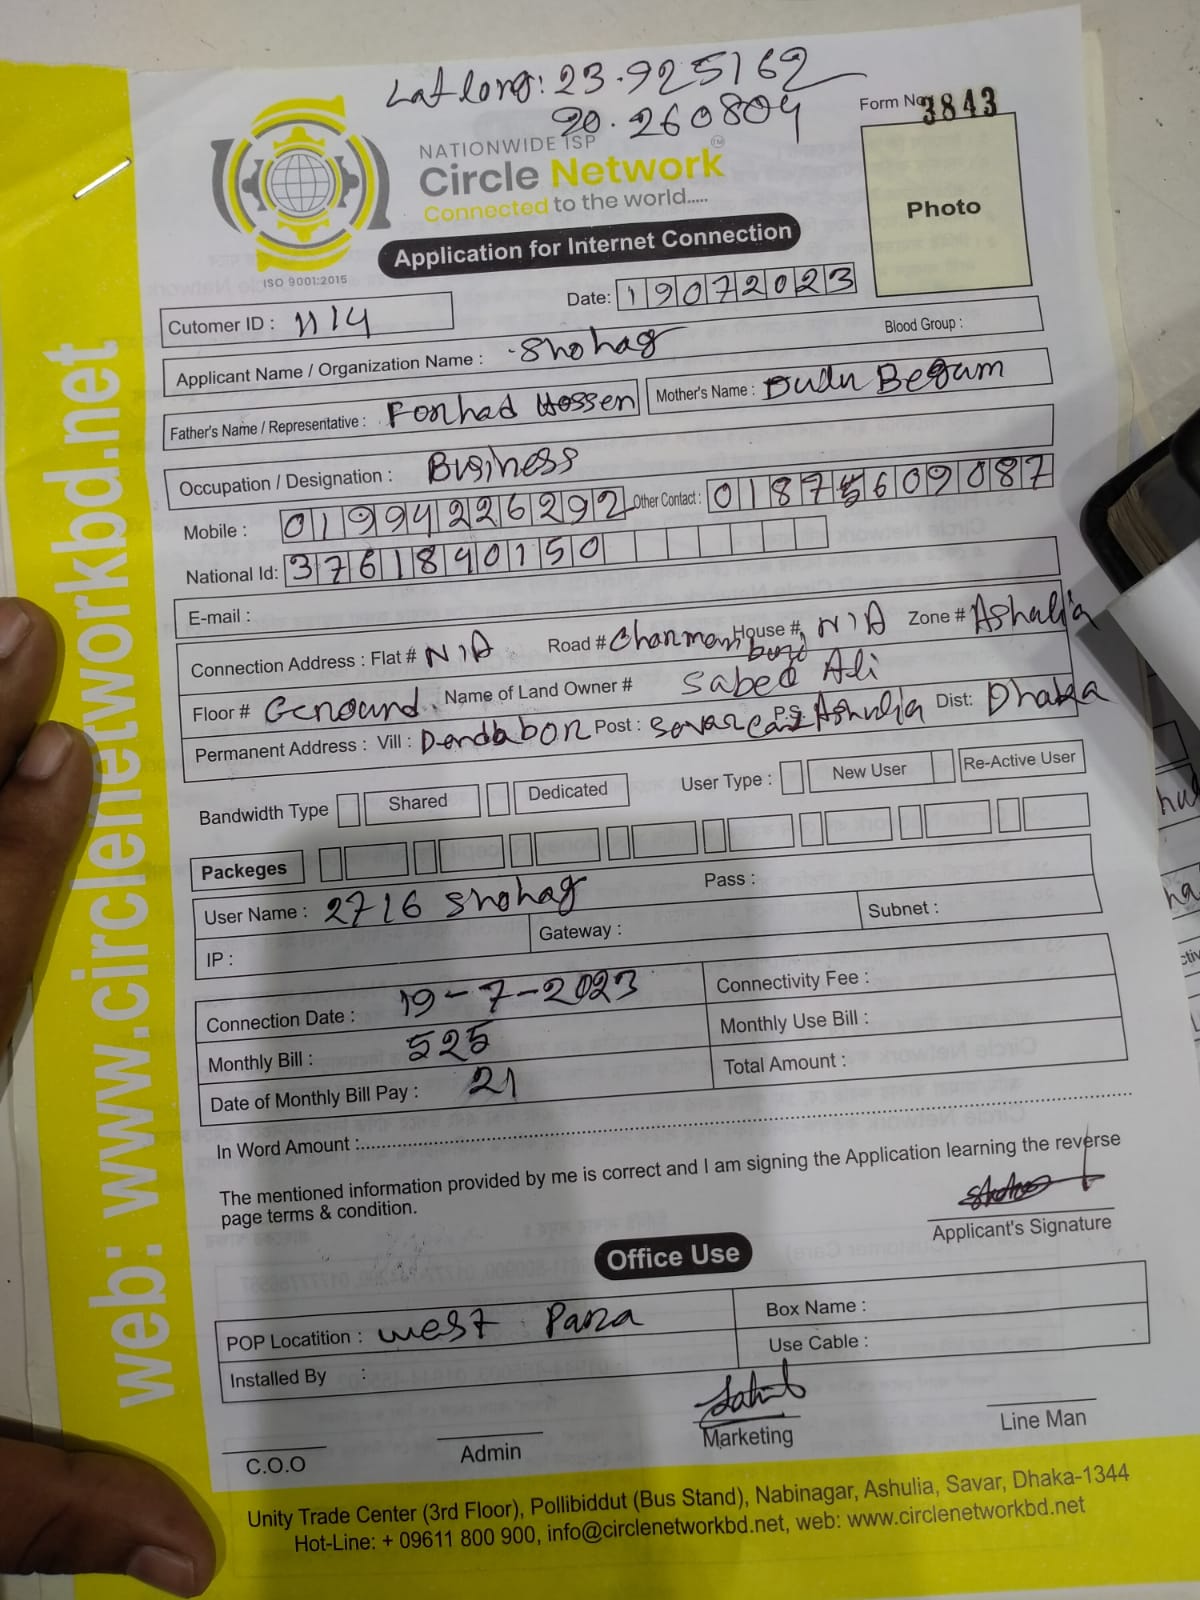 Lat long: 23.925162
90.260804
Form No. 3843
NATIONWIDE ISP
Circle Network TM
Connected to the world.....
Photo
Application for Internet Connection
ISO 9001:2015
Date: 19072023
Cutomer ID : 1114
Applicant Name / Organization Name : Shohag
Blood Group :
Father's Name / Representative : Forhad Hossen
Mother's Name : Dudu Begum
Occupation / Designation : Business
Mobile : 01994226292 Other Contact : 01875609087
National Id: 3761840150
E-mail :
Connection Address : Flat # N/A Road # Charman bari House # N/A Zone # Ashulia
Floor # Ground. Name of Land Owner # Sabed Ali
Permanent Address : Vill : Dendabor Post : Savar Cant P.S Ashulia Dist: Dhaka
Bandwidth Type Shared Dedicated User Type : New User Re-Active User
Packeges
User Name : 2716 Shohag Pass :
IP : Gateway : Subnet :
Connection Date : 19-7-2023 Connectivity Fee :
Monthly Bill : 525 Monthly Use Bill :
Date of Monthly Bill Pay : 21 Total Amount :
In Word Amount :
The mentioned information provided by me is correct and I am signing the Application learning the reverse
page terms & condition.
Applicant's Signature
Office Use
POP Locatition : west Para Box Name :
Installed By : Use Cable :
C.O.O Admin Marketing Line Man
Unity Trade Center (3rd Floor), Pollibiddut (Bus Stand), Nabinagar, Ashulia, Savar, Dhaka-1344
Hot-Line: + 09611 800 900, info@circlenetworkbd.net, web: www.circlenetworkbd.net
web: www.circlenetworkbd.net